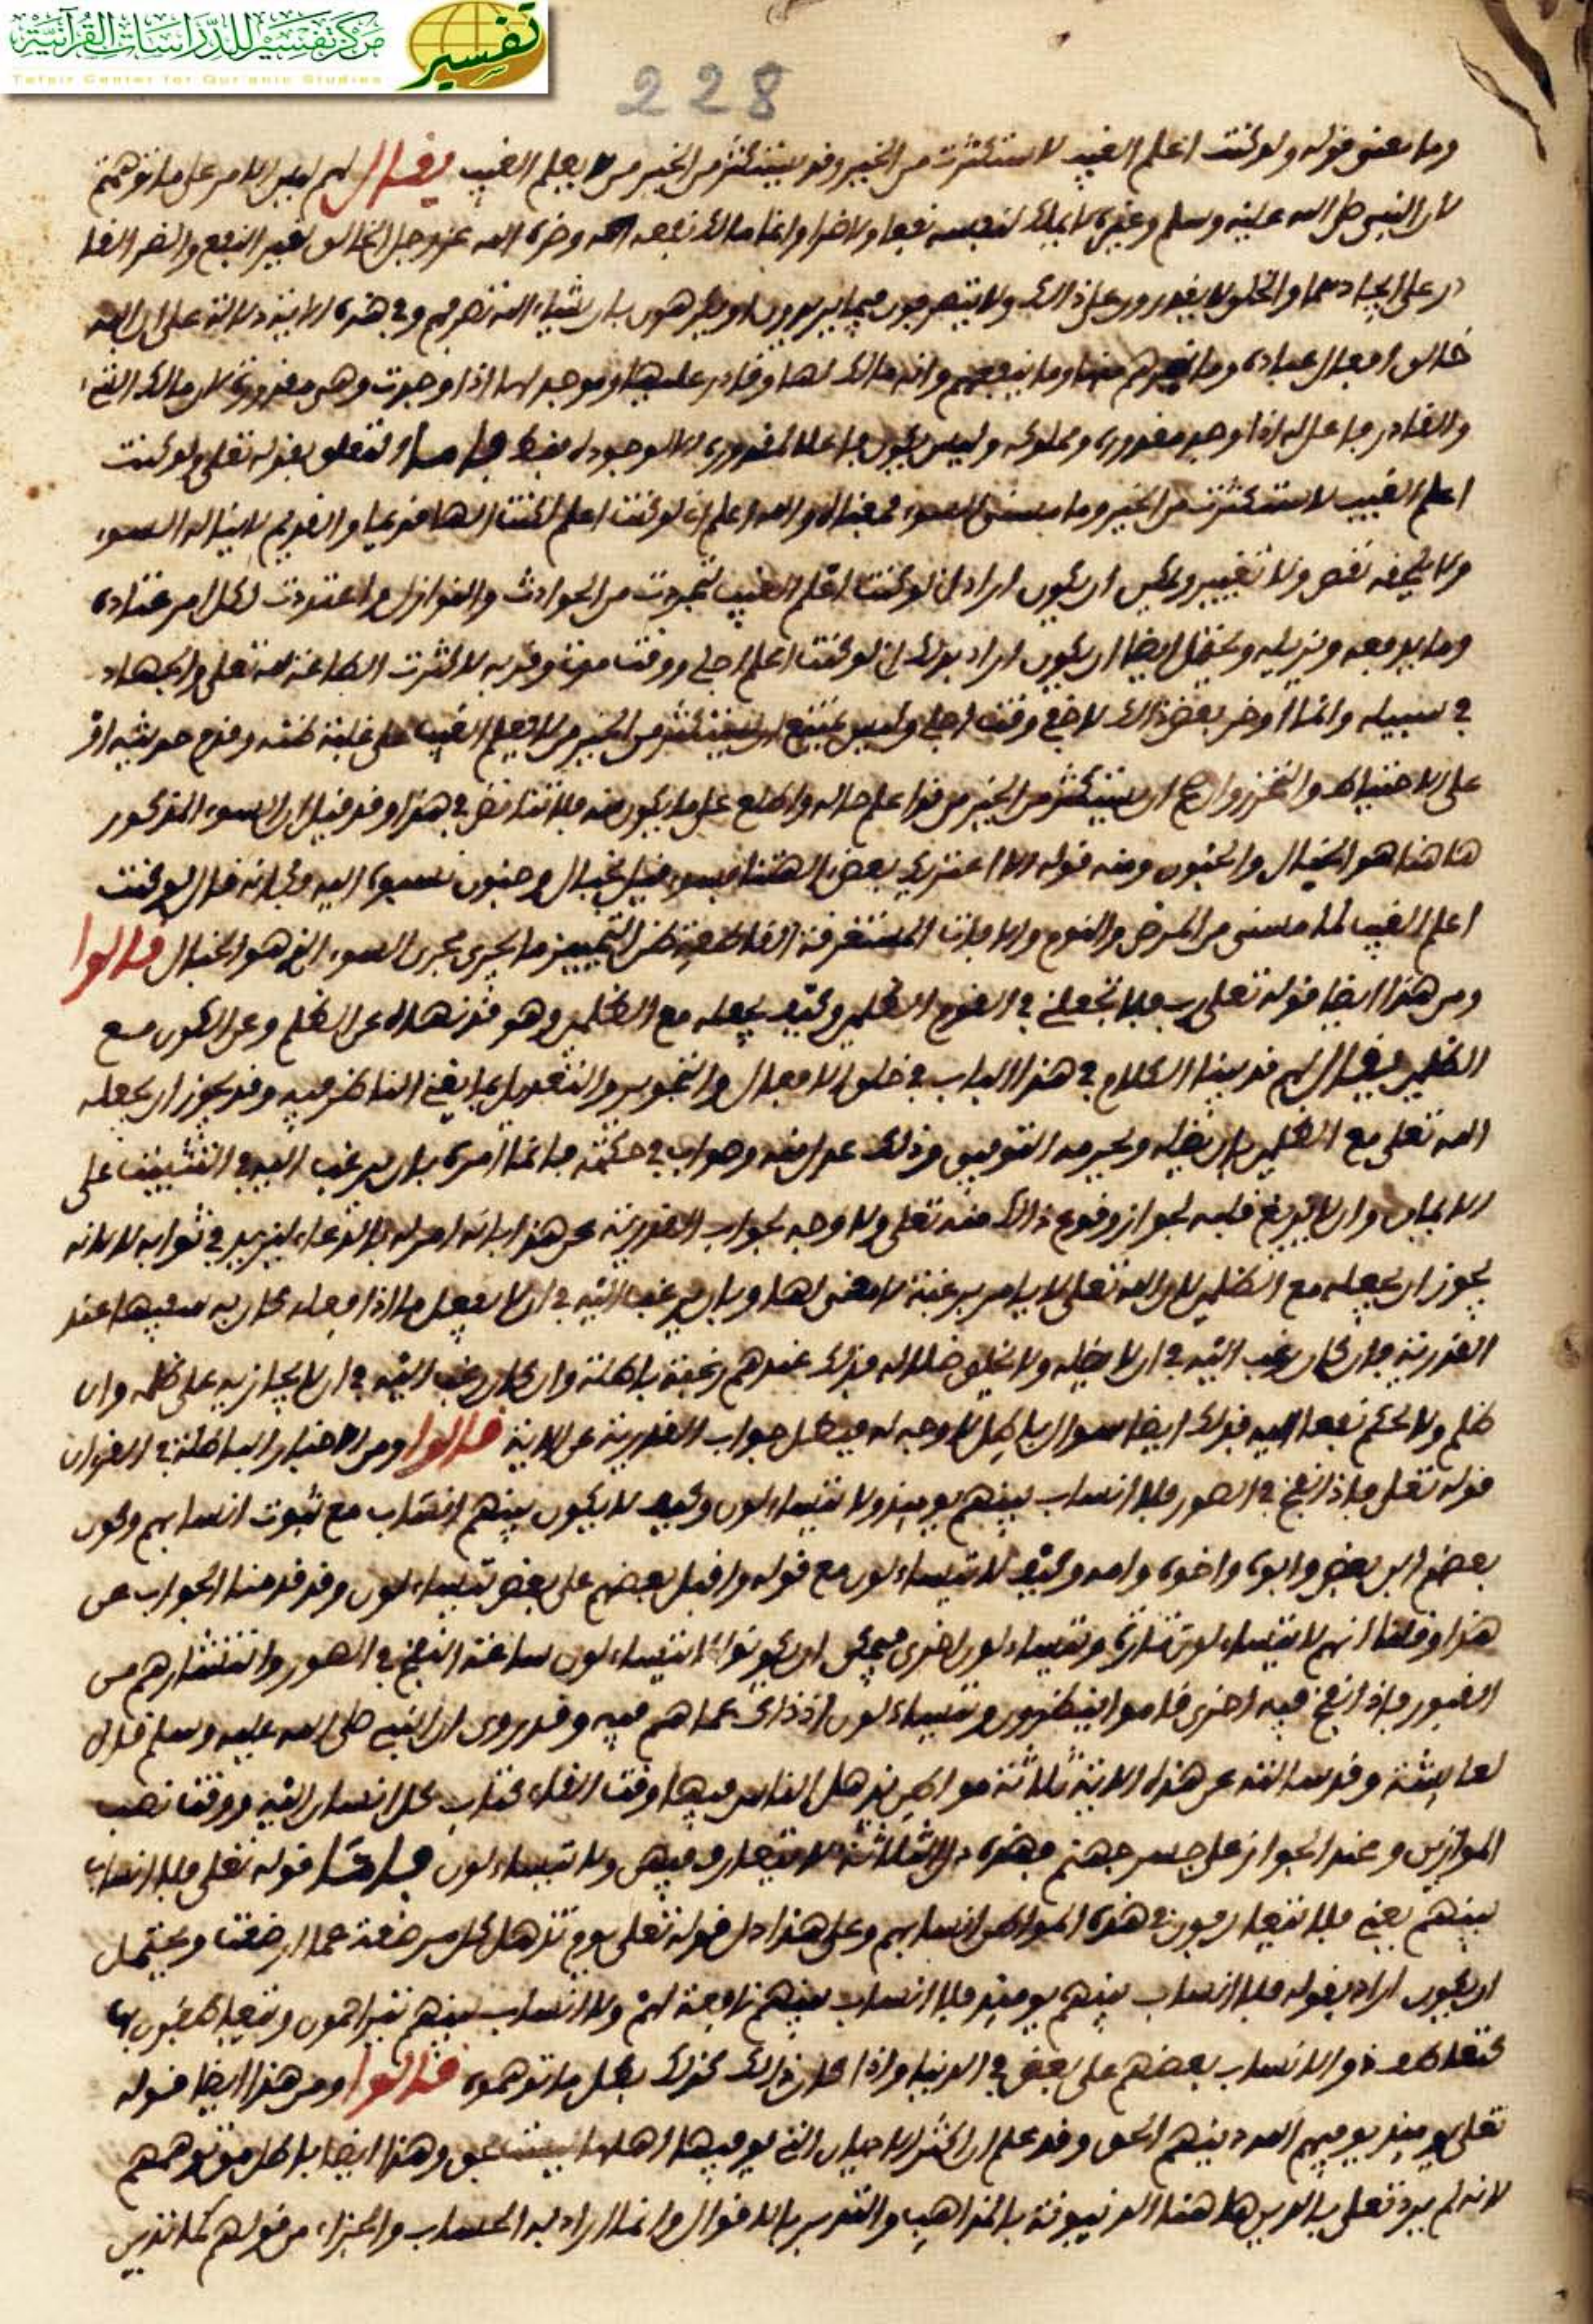 مركز تفسير للدراسات القرآنية
تفسير
Tafsir Center for Qur'anic Studies
228
وما معنى قوله ولو كنت اعلم الغيب لاستكثرت من الخير وقد يستكثر من الخير من لا يعلم الغيب يقال لهم ليس الامر على ما توهمتم
لان النبي صلى الله عليه وسلم وغيره لا يملك لنفسه نفعا ولا ضرا وانما مالك نفعه وضره الله عز وجل الخالق لعين النفع والضر القا
در على ايجادهما والخلق لا يقدرون على ذالك ولا يتصرفون فيما يريدون او يكرهون بل ان يشاء الله تصرفهم وفي هذه الاية دلالة على ان الله
خالق افعال عباده وما يضرهم منها وما ينفعهم وانه مالك لها وقادر عليها وموجد لها اذا وجدت وهي مقدورة لان مالك الشيء
والقادر فاعل له اذا وجد مقدوره ومملوكه وليس يكون فاعلا لمقدوره الا لوجوده فقط فاما التعلق بقوله تعلى ولو كنت
اعلم الغيب لاستكثرت من الخير وما مسني السوء فمعناه والله اعلم اني لو كنت اعلم لكنت الها قديما والقديم لا يناله السوء
ولا يلحقه نقص ولا تغيير ويمكن ان يكون اراد اني لو كنت اعلم الغيب لتحررت من الحوادث والنوازل واعتددت لكل امر عتاده
وما يدفعه ويزيله ويحتمل ايضا ان يكون اراد بذلك اني لو كنت اعلم اجلي ووقت موتي وقربه لاكثرت الطاعة لله تعلى والجهاد
في سبيله وانما اوخر بعض ذالك لا خفي وقت اجلي وليس يمتنع ان يستكثر من الخير من لا يعلم الغيب على غلبة ظنه
على الاحتياط والتحرز وانما ان يستكثر من الخير من قد اعلم حاله واطلع على ما يكون منه فلا تناقض في هذا وقد قيل ان السوء المذكور
هاهنا هو الخبال والجنون ومنه قوله الا اعتريك بعض الهتنا بسوء قيل بخبال وجنون نسبوه اليه وكانه قال لو كنت
اعلم الغيب لما مسني من المرض والنوم والافات المستغرقة القاطعة عن التمييز ما يجري مجرى السوء الذي هو الخبال قالوا
ومن هذا ايضا قوله تعلى رب فلا تجعلني في القوم الظلمين وكيف يجعله مع الظلمين وهو قد نهاه عن الظلم وعن الكون مع
الظلمين يقال لهم قد بينا الكلام في هذا الباب في خلق الافعال والتجوير والتعديل بما يغني الناظر فيه وقد يجوز ان يجعله
الله تعلى مع الظلمين بان يضله ويحرمه التوفيق وذلك عدل منه وصواب في حكمته فانما امره بان يرغب اليه في التثبيت على
الايمان وان لا يزيغ قلبه لجواز وقوع ذالك منه تعلى ولا وجه لجواب القدرية عن هذا بانه امر له بالدعاء ليزيد في ثوابه لا لانه
يجوز ان يجعله مع الظلمين لان الله تعلى لا يامر برغبة لا معنى لها وبان يرغب اليه في ان لا يفعل ما اذا فعله كان به سفيها عند
القدرية فان كان رغب اليه في ان لا يضله ولا يخلق ضلاله فذلك عندهم رغبة باطلة وان كان رغب اليه في ان لا يجازيه على ظلمه وان
ظلم ولا يحكم نفعا اليه فذلك ايضا سوال باطل لا وجه له فبطل جواب القدرية عن الاية قالوا ومن الاخبار الباطلة في القران
قوله تعلى فاذا نفخ في الصور فلا انساب بينهم يومئذ ولا يتساءلون وكيف لا يكون بينهم انساب مع ثبوت انسابهم وكون
بعضهم ابن بعض وابوه واخوه وامه وكيف لا يتساءلون مع قوله واقبل بعضهم على بعض يتساءلون وقد قدمنا الجواب عن
هذا وقلنا انهم لا يتساءلون تارة ويتساءلون اخرى فيمكن ان يكونوا لا يتساءلون ساعة النفخ في الصور وانتشارهم من
القبور فاذا نفخ فيه اخرى قاموا ينظرون ويتساءلون اذذاك عما هم فيه وقد روي ان النبي صلى الله عليه وسلم قال
لعايشة وقد سالته عن هذه الاية ثلاثة مواطن يذهل الناس فيها وقت القاء كتاب كل انسان اليه ووقت نصب
الموازين وعند الجواز على جسر جهنم فهذه الثلاثة لا يتعارف فيهن ولا يتساءلون فاما قوله تعلى فلا انساب
بينهم يعني فلا يتعارفون في هذه المواطن انسابهم وعلى هذا دل قوله تعلى يوم تذهل كل مرضعة عما ارضعت ويحتمل
ان يكون اراد بقوله فلا انساب بينهم يومئذ فلا انساب بينهم نافعة لهم ولا انساب بينهم يتراحمون ويتعاطفون بها
كتعاطف ذو الانساب بعضهم على بعض في الدنيا واذا كان ذالك كذلك بطل ما توهموه قالوا ومن هذا ايضا قوله
تعلى يومئذ يوفيهم الله دينهم الحق وقد علم ان اكثر الاديان التي يوفيها اهلها ليست بحق وهذا ايضا باطل من توهمهم
لانه لم يرد تعلى بالدين هاهنا الدينونة بالمذاهب والتدين بالاقوال وانما اراد به الحساب والجزاء من قولهم كما تدين